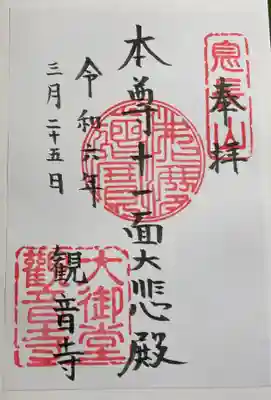 奉拝
本尊十一面大悲殿
令和六年
三月二十五日
観音寺
息長山
大御堂
観音寺